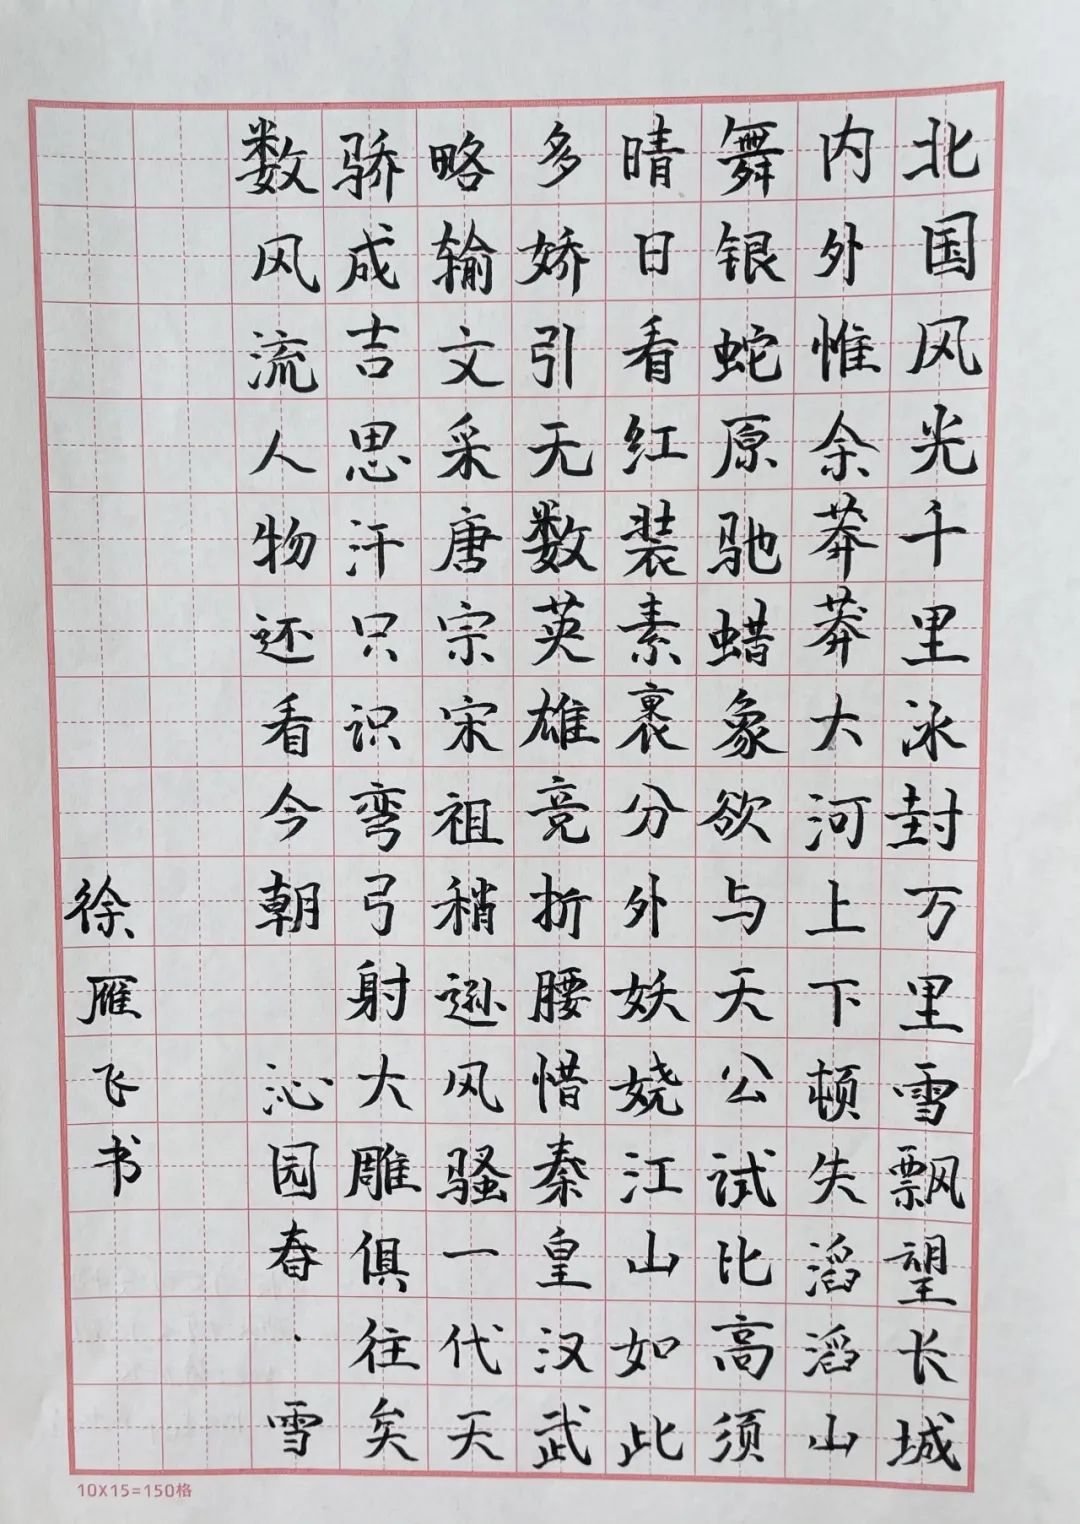 北国风光千里冰封万里雪飘望长城
内外惟余莽莽大河上下顿失滔滔山
舞银蛇原驰蜡象欲与天公试比高须
晴日看红装素裹分外妖娆江山如此
多娇引无数英雄竞折腰惜秦皇汉武
略输文采唐宗宋祖稍逊风骚一代天
骄成吉思汗只识弯弓射大雕俱往矣
数风流人物还看今朝 沁园春·雪
徐雁飞书
10X15=150格